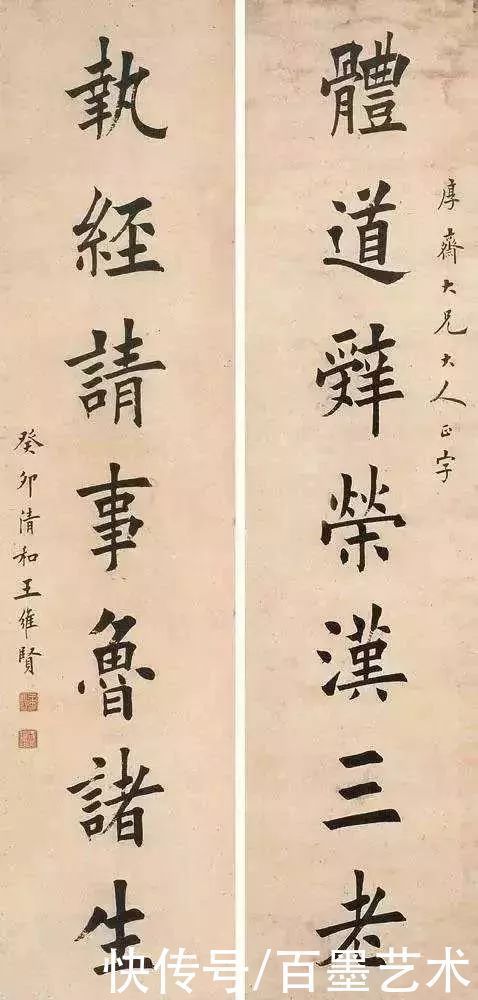 厚齋大兄大人正字
體道辤榮漢三老
執經請事魯諸生
癸卯清和王維賢
快传号/百墨艺术